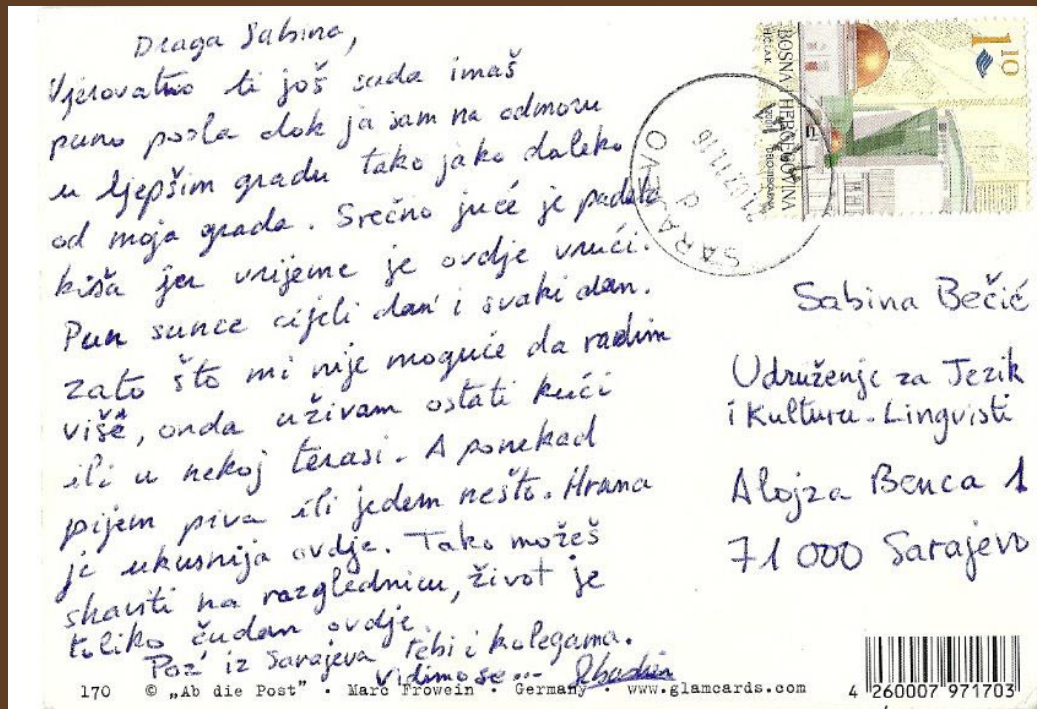 Draga Sabina,
Vjerovatno ti još sada imaš
puno posla dok ja sam na odmoru
u ljepšim gradu tako jako daleko
od moja grada. Srečno juće je padala
kiša jer vrijeme je ovdje vrući.
Pun sunce cijeli dan i svaki dan.
zato što mi nije moguće da radim
više, onda uživam ostati kući
ili u nekoj terasi. A ponekad
pijem piva ili jedem nešto. Hrana
je ukusnija ovdje. Tako možeš
shaviti na razglednicu, život je
toliko čudan ovdje.
Poz' iz Sarajeva tebi i kolegama.
vidimo se...
BOSNA I HERCEGOVINA
1,10
SARAJEVO
Sabina Bečić
Udruženje za Jezik
i Kulturu - Lingvisti
Alojza Benca 1
71 000 Sarajevo
170 © „Ab die Post" · Marc Frowein · Germany · www.glamcards.com
4 260007 971703